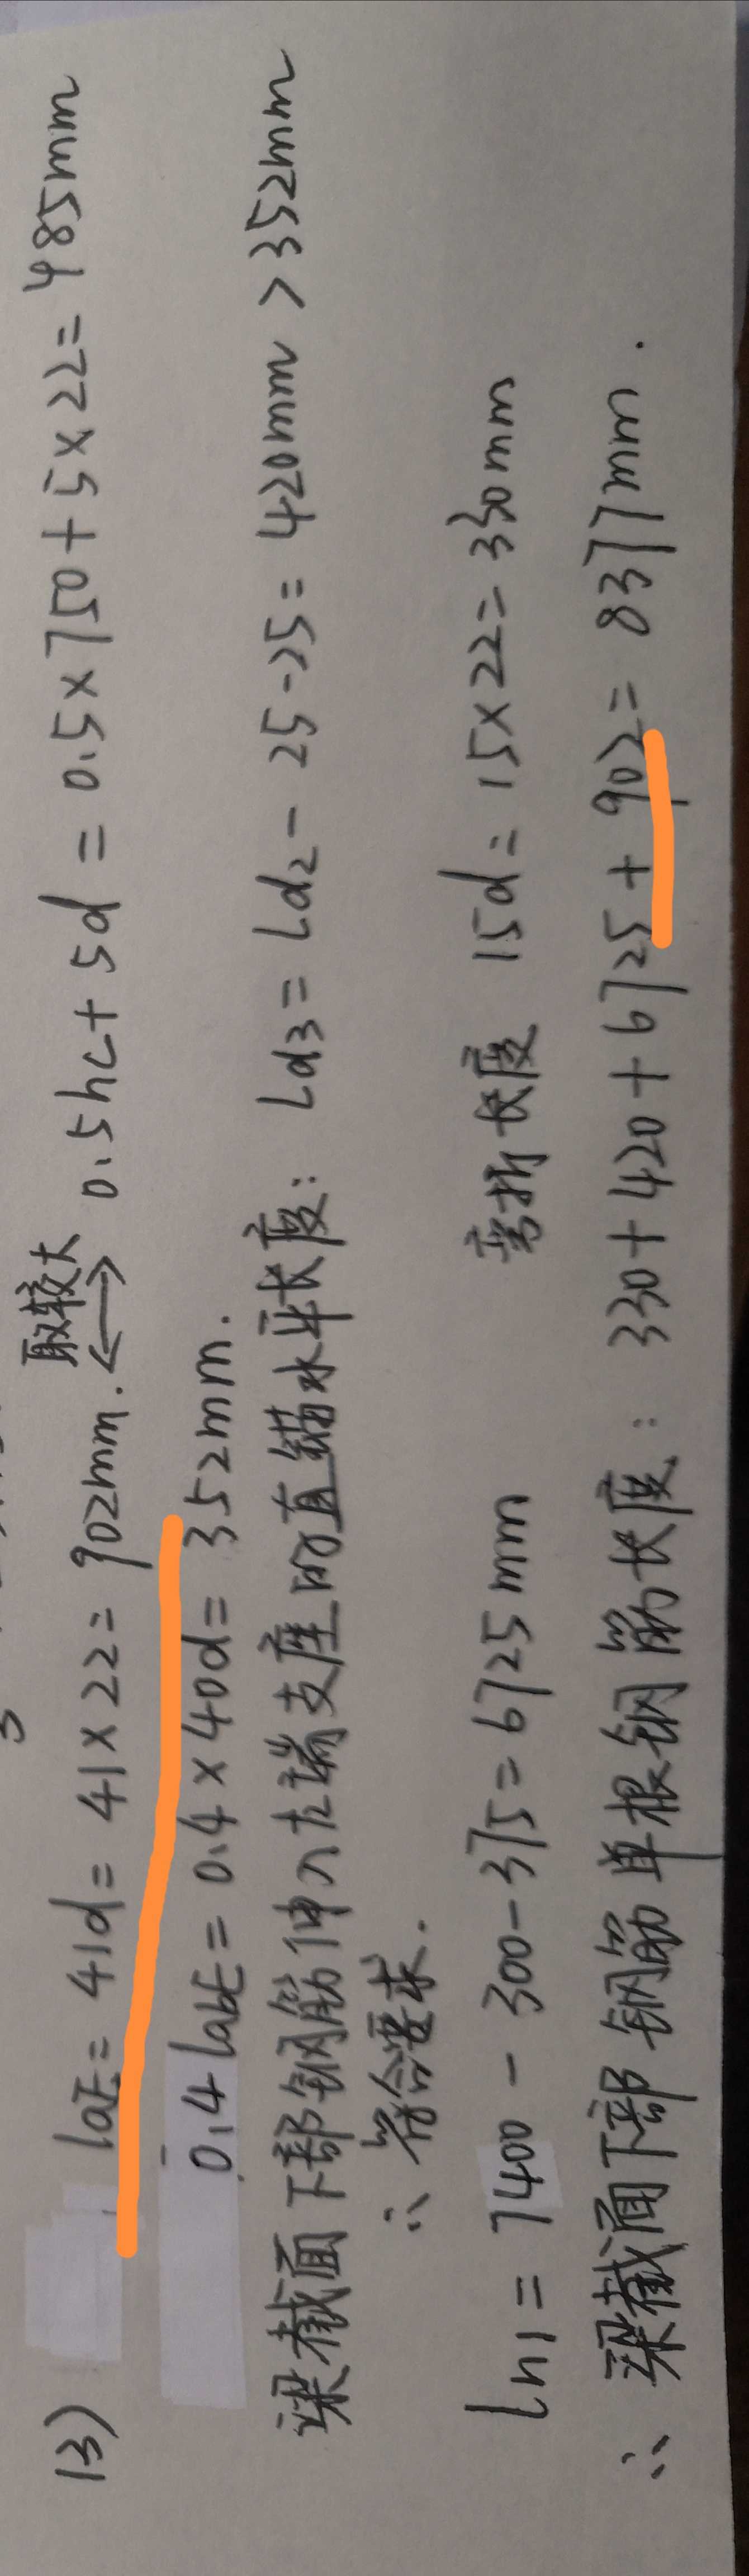 13) laE = 41d = 41×22 = 902mm. 取较大 ⟷ 0.5hc + 5d = 0.5×750 + 5×22 = 485mm
0.4labE = 0.4×40d = 352mm.
梁截面下部钢筋伸入左端支座的直锚水平长度: Ld3 = Ld2 - 25 - 25 = 420mm > 352mm
∴ 符合要求.
ln1 = 7400 - 300 - 375 = 6725mm 弯折长度 15d = 15×22 = 330mm
∴ 梁截面下部钢筋单根钢筋长度: 330 + 420 + 6725 + 902 = 8377mm.